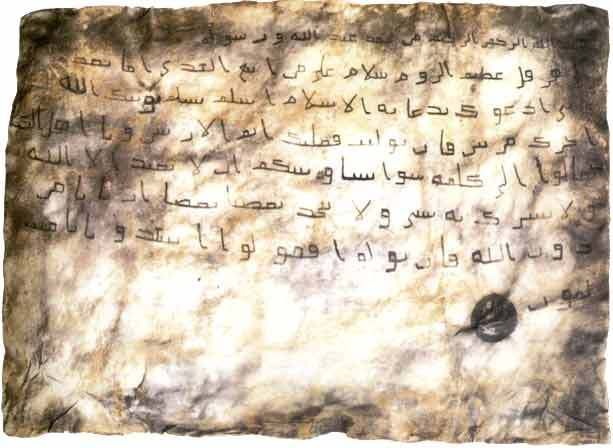 بسم الله الرحمن الرحيم من محمد عبد الله ورسوله
هرقل عظيم الروم سلام على من اتبع الهدى اما بعد
ادعوك بدعايه الاسلام اسلم تسلم يوتك الله
اجرك مرتين فان توليت فعليك اثم الاريسين ويا اهل الك
تعالوا الى كلمه سوا بيننا وبينكم ان لا نعبد الا الله
ولا نشرك به شي ولا يتخذ بعضنا بعضا اربابا من
دون الله فان تولوا فقولوا اشهدوا بانا مس
لمون